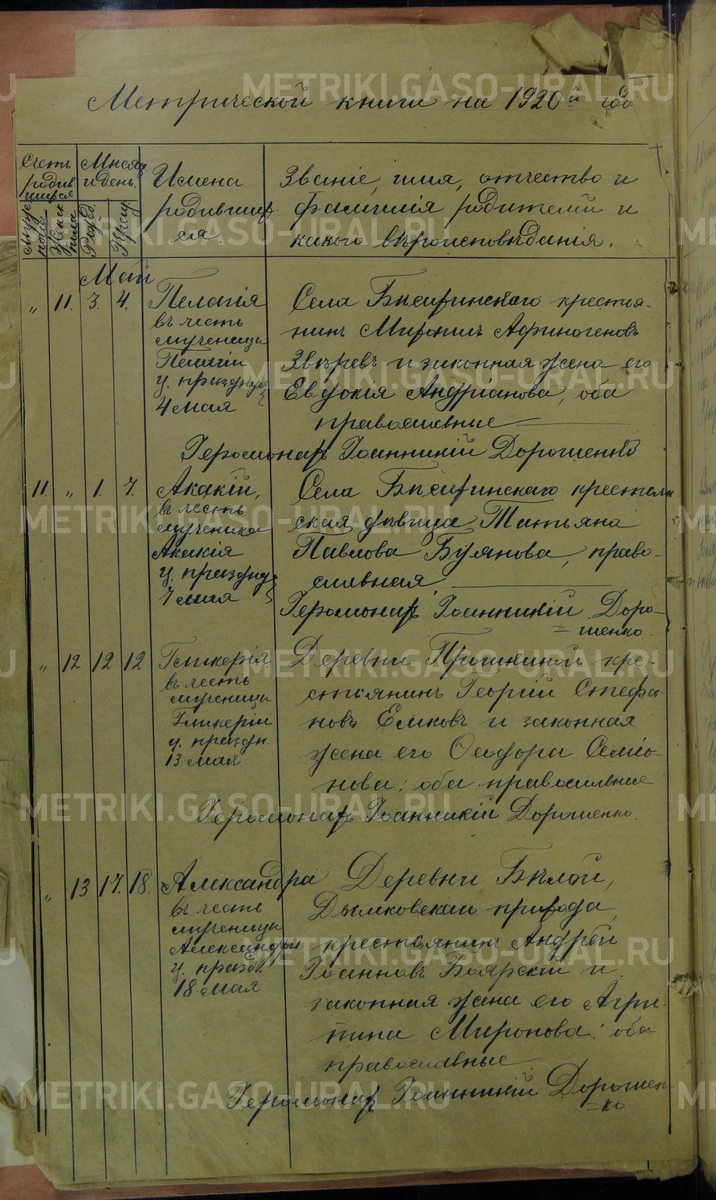 Метрической книги на 1920й годъ
Счетъ родившихся
Мужеска пола
Женска пола
Мѣсяцъ и день
Рожд.
Крещ.
Имена родившихся.
Званіе, имя, отчество и
фамилія родителей и
какого вѣроисповѣданія.
Май
" 11. 3. 4.
Пелагія
въ честь
мученицы
Пелагіи
ц. праздну
4 мая
Села Бисеринскаго крестья-
нинъ
Афиногеновъ
Звѣревъ и законная жена его
Евдокія Андріанова, оба
православные
Іеромонахъ Іоанникій Дорошенко
11 " 1. 7.
Акакій,
въ честь
мученика
Акакія
ц. праздну
7 мая
Села Бисеринскаго крестьян
ская дѣвица, Татьяна
Павлова Булянова, право-
славная
Іеромонахъ Іоанникій Доро-
=шенко.
" 12 12 12
Гликерія
въ честь
мученицы
Гликеріи
ц. праздн.
13 мая
Деревни
кре-
стьянинъ Георгій Стефа-
новъ Елковъ и законная
жена его Ѳеодора Семіо-
нова; оба православные
Іеромонахъ Іоанникій Дорошенко.
" 13 17. 18.
Александра
въ честь
мученицы
Александры
ц. праздн.
18 мая
Деревни Бѣлой,
Дымковскаго прихода,
крестьянинъ Андрей
Іоанновъ Боярскій и
законная жена его Агри-
пина Миронова: оба
православные
Іеромонахъ Іоанникій Дорошен-
=ко
METRIKI.GASO-URAL.RU